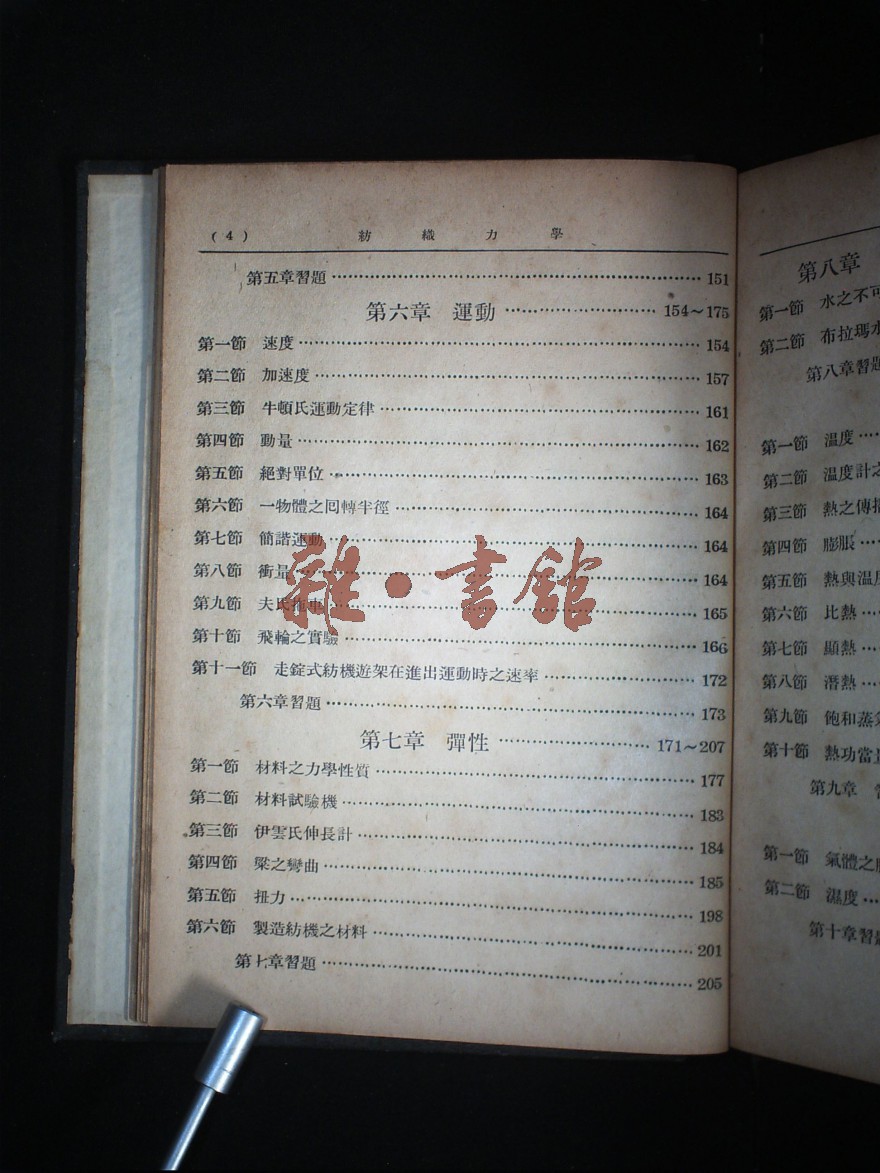 (4) 紡織力學
第五章習題 151
第六章 運動 154～175
第一節 速度 154
第二節 加速度 157
第三節 牛頓氏運動定律 161
第四節 動量 162
第五節 絕對單位 163
第六節 一物體之囘轉半徑 164
第七節 簡諧運動 164
第八節 衝量 164
第九節 夫氏拖車 165
第十節 飛輪之實驗 166
第十一節 走錠式紡機遊架在進出運動時之速率 172
第六章習題 173
第七章 彈性 171～207
第一節 材料之力學性質 177
第二節 材料試驗機 183
第三節 伊雲氏伸長計 184
第四節 梁之彎曲 185
第五節 扭力 198
第六節 製造紡機之材料 201
第七章習題 205
雜·書館
第八章
第一節 水之不可
第二節 布拉瑪水
第八章習題
第一節 溫度
第二節 溫度計之
第三節 熱之傳播
第四節 膨脹
第五節 熱與溫度
第六節 比熱
第七節 顯熱
第八節 潛熱
第九節 飽和蒸氣
第十節 熱功當量
第九章
第一節 氣體之
第二節 濕度
第十章習題